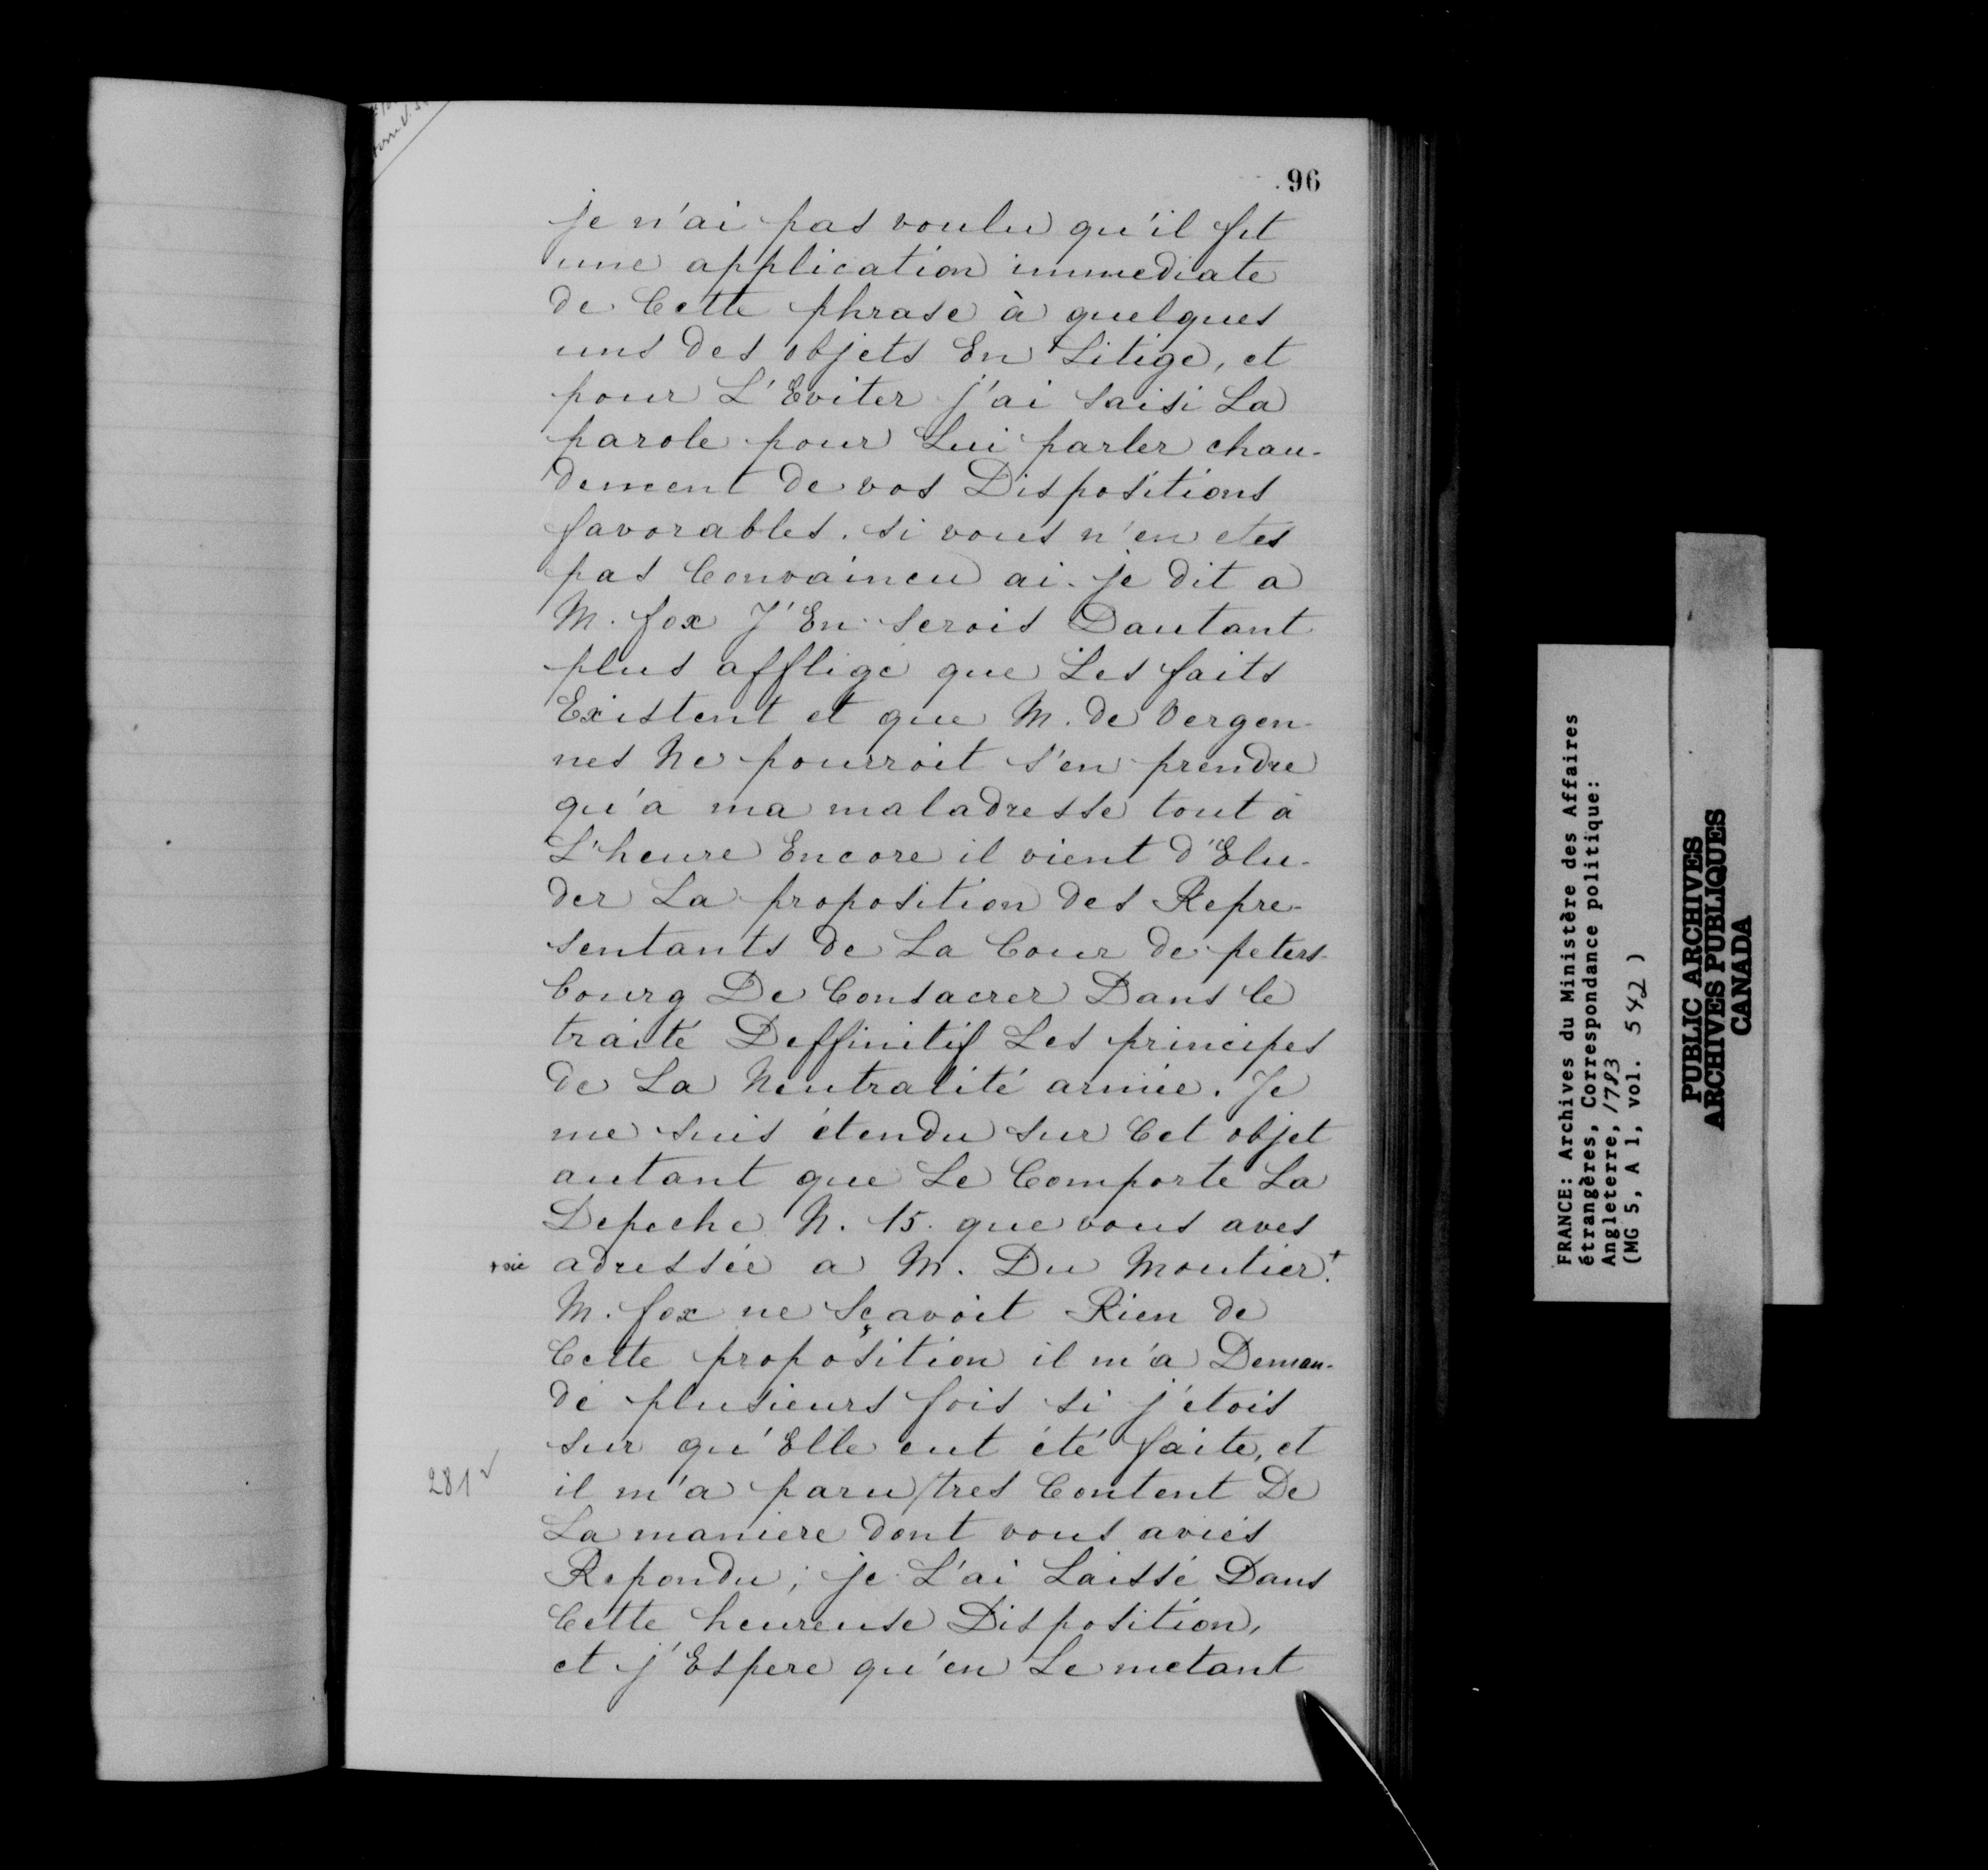 96
je n'ai pas voulu qu'il fit
une application immediate
de Cette phrase à quelques
uns des objets En Litige, et
pour L'Eviter j'ai saisi La
parole pour Lui parler chau-
dement de vos Dispositions
favorables. si vous n'en etes
pas Convaincu ai-je dit a
M. fox J'En serois Dautant
plus affligé que Les faits
Existent et que M. de Vergen-
nes Ne pourroit s'en prendre
qu'a ma maladresse tout à
L'heure Encore il vient d'Elu-
der La proposition des Repre-
sentants de La Cour de peters-
bourg De Consacrer Dans le
traité Deffinitif Les principes
de La Neutralité armée. Je
me suis étendu sur Cet objet
autant que Le Comporte La
Depeche N. 15. que vous aves
+ sic adressée a M. Du Moutier.+
M. fox ne Sçavoit Rien de
Cette proposition il m'a Deman-
dé plusieurs fois si j'étois
sur qu'Elle eut été faite, et
281 il m'a paru/tres Content De
La maniere dont vous aviés
Repondu; je L'ai Laissé Dans
Cette heureuse Disposition,
et j'Espere qu'en Le metant
FRANCE: Archives du Ministère des Affaires
étrangères, Correspondance politique:
Angleterre, 1783
(MG 5, A 1, vol. 542 )
PUBLIC ARCHIVES
ARCHIVES PUBLIQUES
CANADA